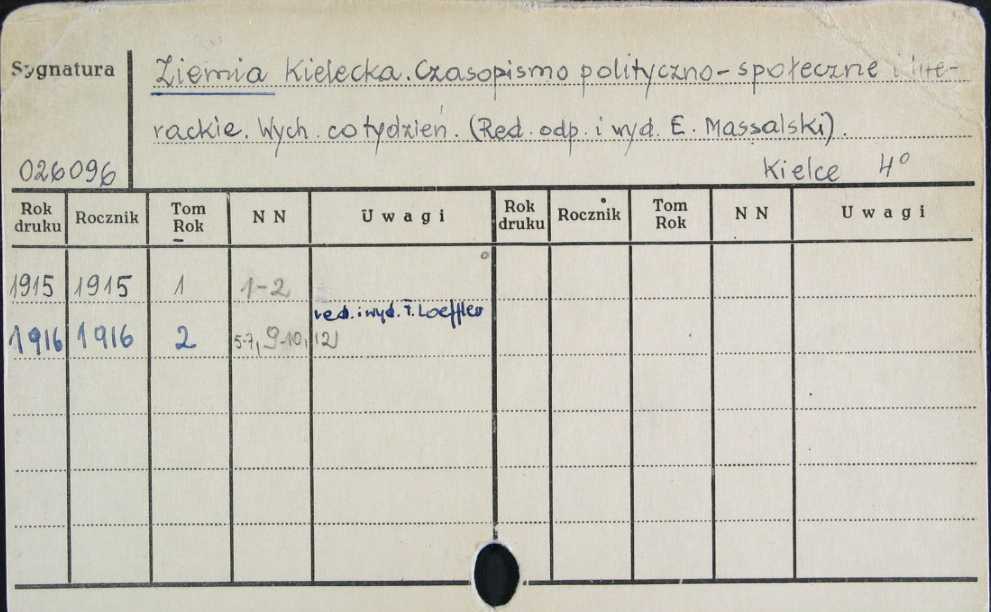 Sygnatura
Ziemia Kielecka. Czasopismo polityczno-społeczne i lite-
rackie. Wych. co tydzień. (Red. odp. i wyd. E. Massalski).
026096
Kielce 4°
Rok druku Rocznik Tom Rok N N Uwagi Rok druku Rocznik Tom Rok N N Uwagi
1915 1915 1 1-2
red. i wyd. T. Loeffler
1916 1916 2 5-7, 9-10, 12